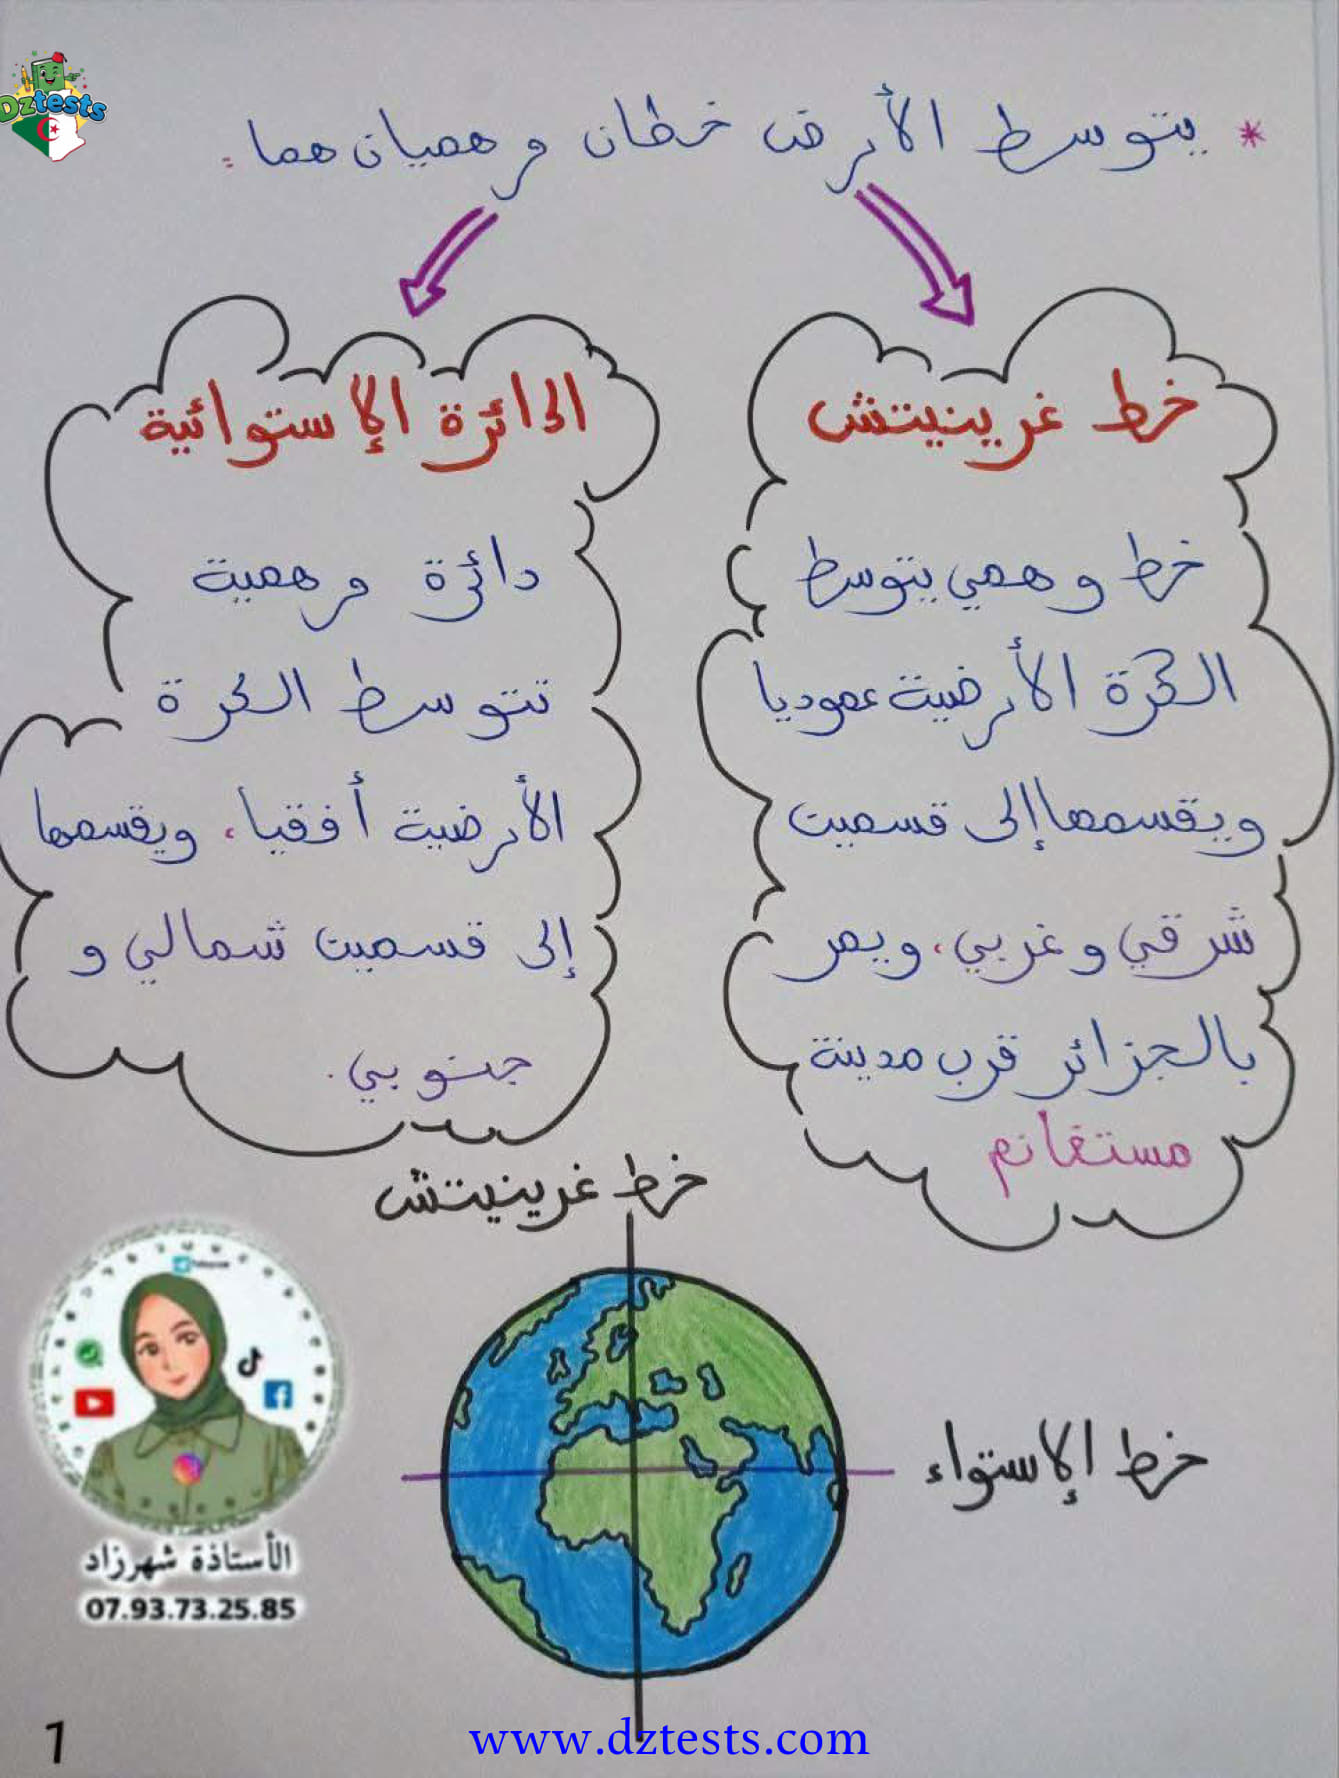 Dztests
* يتوسط الأرض خطان وهميان هما:
خط غرينيتش
خط وهمي يتوسط
الكرة الأرضية عموديا
ويقسمها إلى قسمين
شرقي وغربي، ويمر
بالجزائر قرب مدينة
مستغانم
الدائرة الإستوائية
دائرة وهمية
تتوسط الكرة
الأرضية أفقيا، ويقسمها
إلى قسمين شمالي و
جنوبي.
خط غرينيتش
خط الإستواء
الأستاذة شهرزاد
07.93.73.25.85
1
www.dztests.com